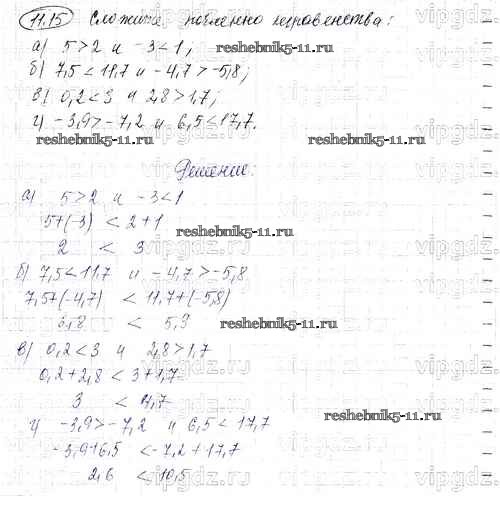 11.15 Сложите почленно неравенства:
а) 5>2 и -3<1;
reshebnik5-11.ru
б) 7,5<11,7 и -4,7>-5,8;
в) 0,2<3 и 2,8>1,7;
г) -3,9>-7,2 и 6,5<17,7.
reshebnik5-11.ru reshebnik5-11.ru
Решение:
а) 5>2 и -3<1
5+(-3) < 2+1
reshebnik5-11.ru
2 < 3
б) 7,5<11,7 и -4,7>-5,8
7,5+(-4,7) < 11,7+(-5,8)
3,8 < 5,3
reshebnik5-11.ru
в) 0,2<3 и 2,8>1,7
0,2+2,8 < 3+1,7
3 < 4,7
reshebnik5-11.ru
г) -3,9>-7,2 и 6,5<17,7
-3,9+6,5 < -7,2+17,7
2,6 < 10,5
vipgdz.ru